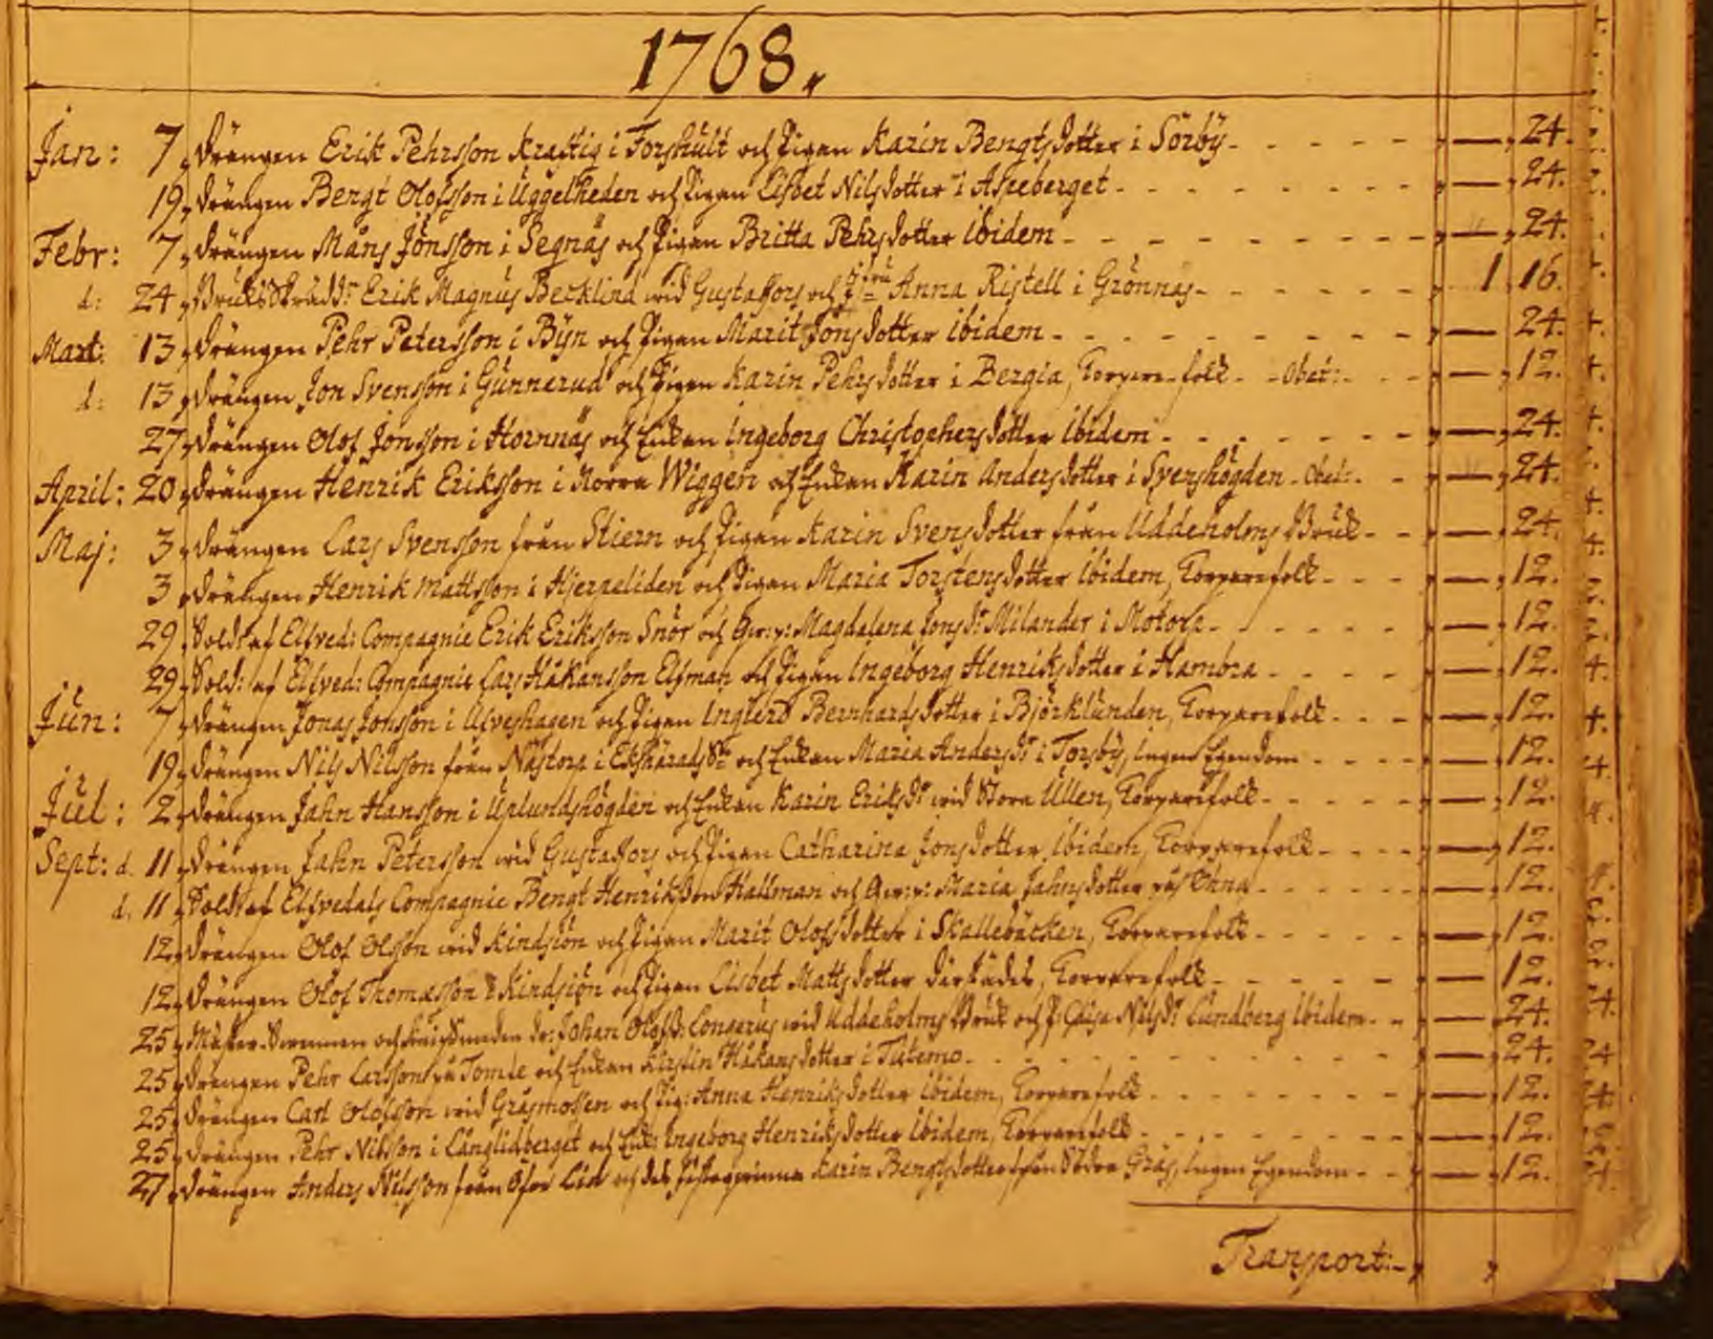 1768.
Jan: 7, Drängen Erik Pehrsson Kraftig i Forshult och Pigan Karin Bengtsdotter i Sörby - - - - - „ — „ 24.
19, Drängen Bengt Olofsson i Uggelheden och Pigan Lisbet Nilsdotter i Aspeberget - - - - - „ — „ 24.
Febr: 7, Drängen Måns Jönsson i Segnäs och Pigan Britta Pehrsdotter ibidem - - - - - „ — „ 24.
d: 24, Bruks Skrädd:r Erik Magnus Becklind wid Gustafsfors och Jfru Anna Ristell i Grönnäs - - - - - 1. 16.
Mart: 13, Drängen Pehr Petersson i Byn och Pigan Marit Jonsdotter ibidem - - - - - „ — „ 24.
d: 13, Drängen Jon Svensson i Gunnerud och Pigan Karin Pehrsdotter i Bergia, Torpare-folk - - Obet: - - „ — „ 12.
27, Drängen Olof Jonsson i Hornnäs och Enkan Ingeborg Christophersdotter ibidem - - - - - „ — „ 24.
April: 20, Drängen Henrik Eriksson i Norra Wiggen och Enkan Karin Andersdotter i Svenshögden - Obet: - - „ — „ 24.
Maj: 3, Drängen Lars Svensson från Stiern och Pigan Karin Svensdotter från Uddeholms Bruk - - „ — „ 24.
3, Drängen Henrik Mattsson i Hjerpeliden och Pigan Maria Torstensdotter ibidem, Torparefolk - - - „ — „ 12.
29, Sold: af Elfved: Compagnie Erik Eriksson Snör och Qv:p: Magdalena Jons D:r Milander i Motorp - - - - - „ — „ 12.
29, Sold: af Elfved: Compagnie Lars Håkansson Elfman och Pigan Ingeborg Henriksdotter i Hambra - - - - „ — „ 12.
Jun: 7, Drängen Jonas Jonsson i Alfveshagen och Pigan Ingierd Bernhardsdotter i Björklunden, Torparefolk - - - „ — „ 12.
19, Drängen Nils Nilsson från Nästorp i Ekshärads S:n och Enkan Maria Anders D:r i Torsby, Ingen Egendom - - - - „ — „ 12.
Jul: 2, Drängen Jahn Hansson i Uplundshögden och Enkan Karin Eriks D:r wid Stora Ullen, Torparefolk - - - - „ — „ 12.
Sept: d. 11, Drängen Jahn Petersson wid Gustafsfors och Pigan Catharina Jonsdotter ibidem, Torparefolk - - - - „ — „ 12.
d. 11, Sold: af Elfvedals Compagnie Bengt Henriksson Hallman och Qv:p: Maria Jahnsdotter på - - - - - „ — „ 12.
12, Drängen Olof Olsson wid Kindsjön och Pigan Marit Olofsdotter i Skallebäcken, Torparefolk - - - - - „ — „ 12.
12, Drängen Olof Thomasson i Kindsjön och Pigan Lisbet Mattsdotter därstädes, Torparefolk - - - - - „ — „ 12.
25, Mäster-Svennen och Johan Olofs S: wid Uddeholms Bruk och P: Caisa Nils D:r Lundberg ibidem - - „ — „ 24.
25, Drängen Pehr Larsson på Tomte och Enkan Kirstin Håkansdotter i Tutemo - - - - - „ — „ 24.
25, Drängen Carl Olofsson wid Gräsmossen och Pig: Anna Henriksdotter ibidem, Torparefolk - - - - - „ — „ 12.
25, Drängen Pehr Nilsson i Långlidberget och Enk: Ingeborg Henriksdotter ibidem, Torparefolk - - - - - „ — „ 12.
27, Drängen Anders Nilsson från Öfre Lid och des Karin Bengtsdotter från Södra Gräs, Ingen Egendom - - „ — „ 12.
Transport: - „ „